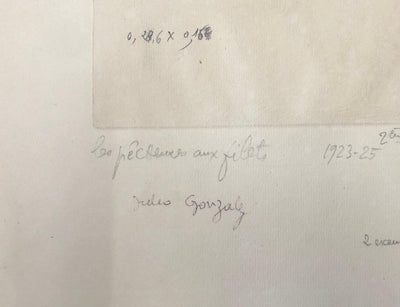 0,28,6 x 0,
les pêcheuses aux filets 1923-25
Julio Gonzalez
2 exem